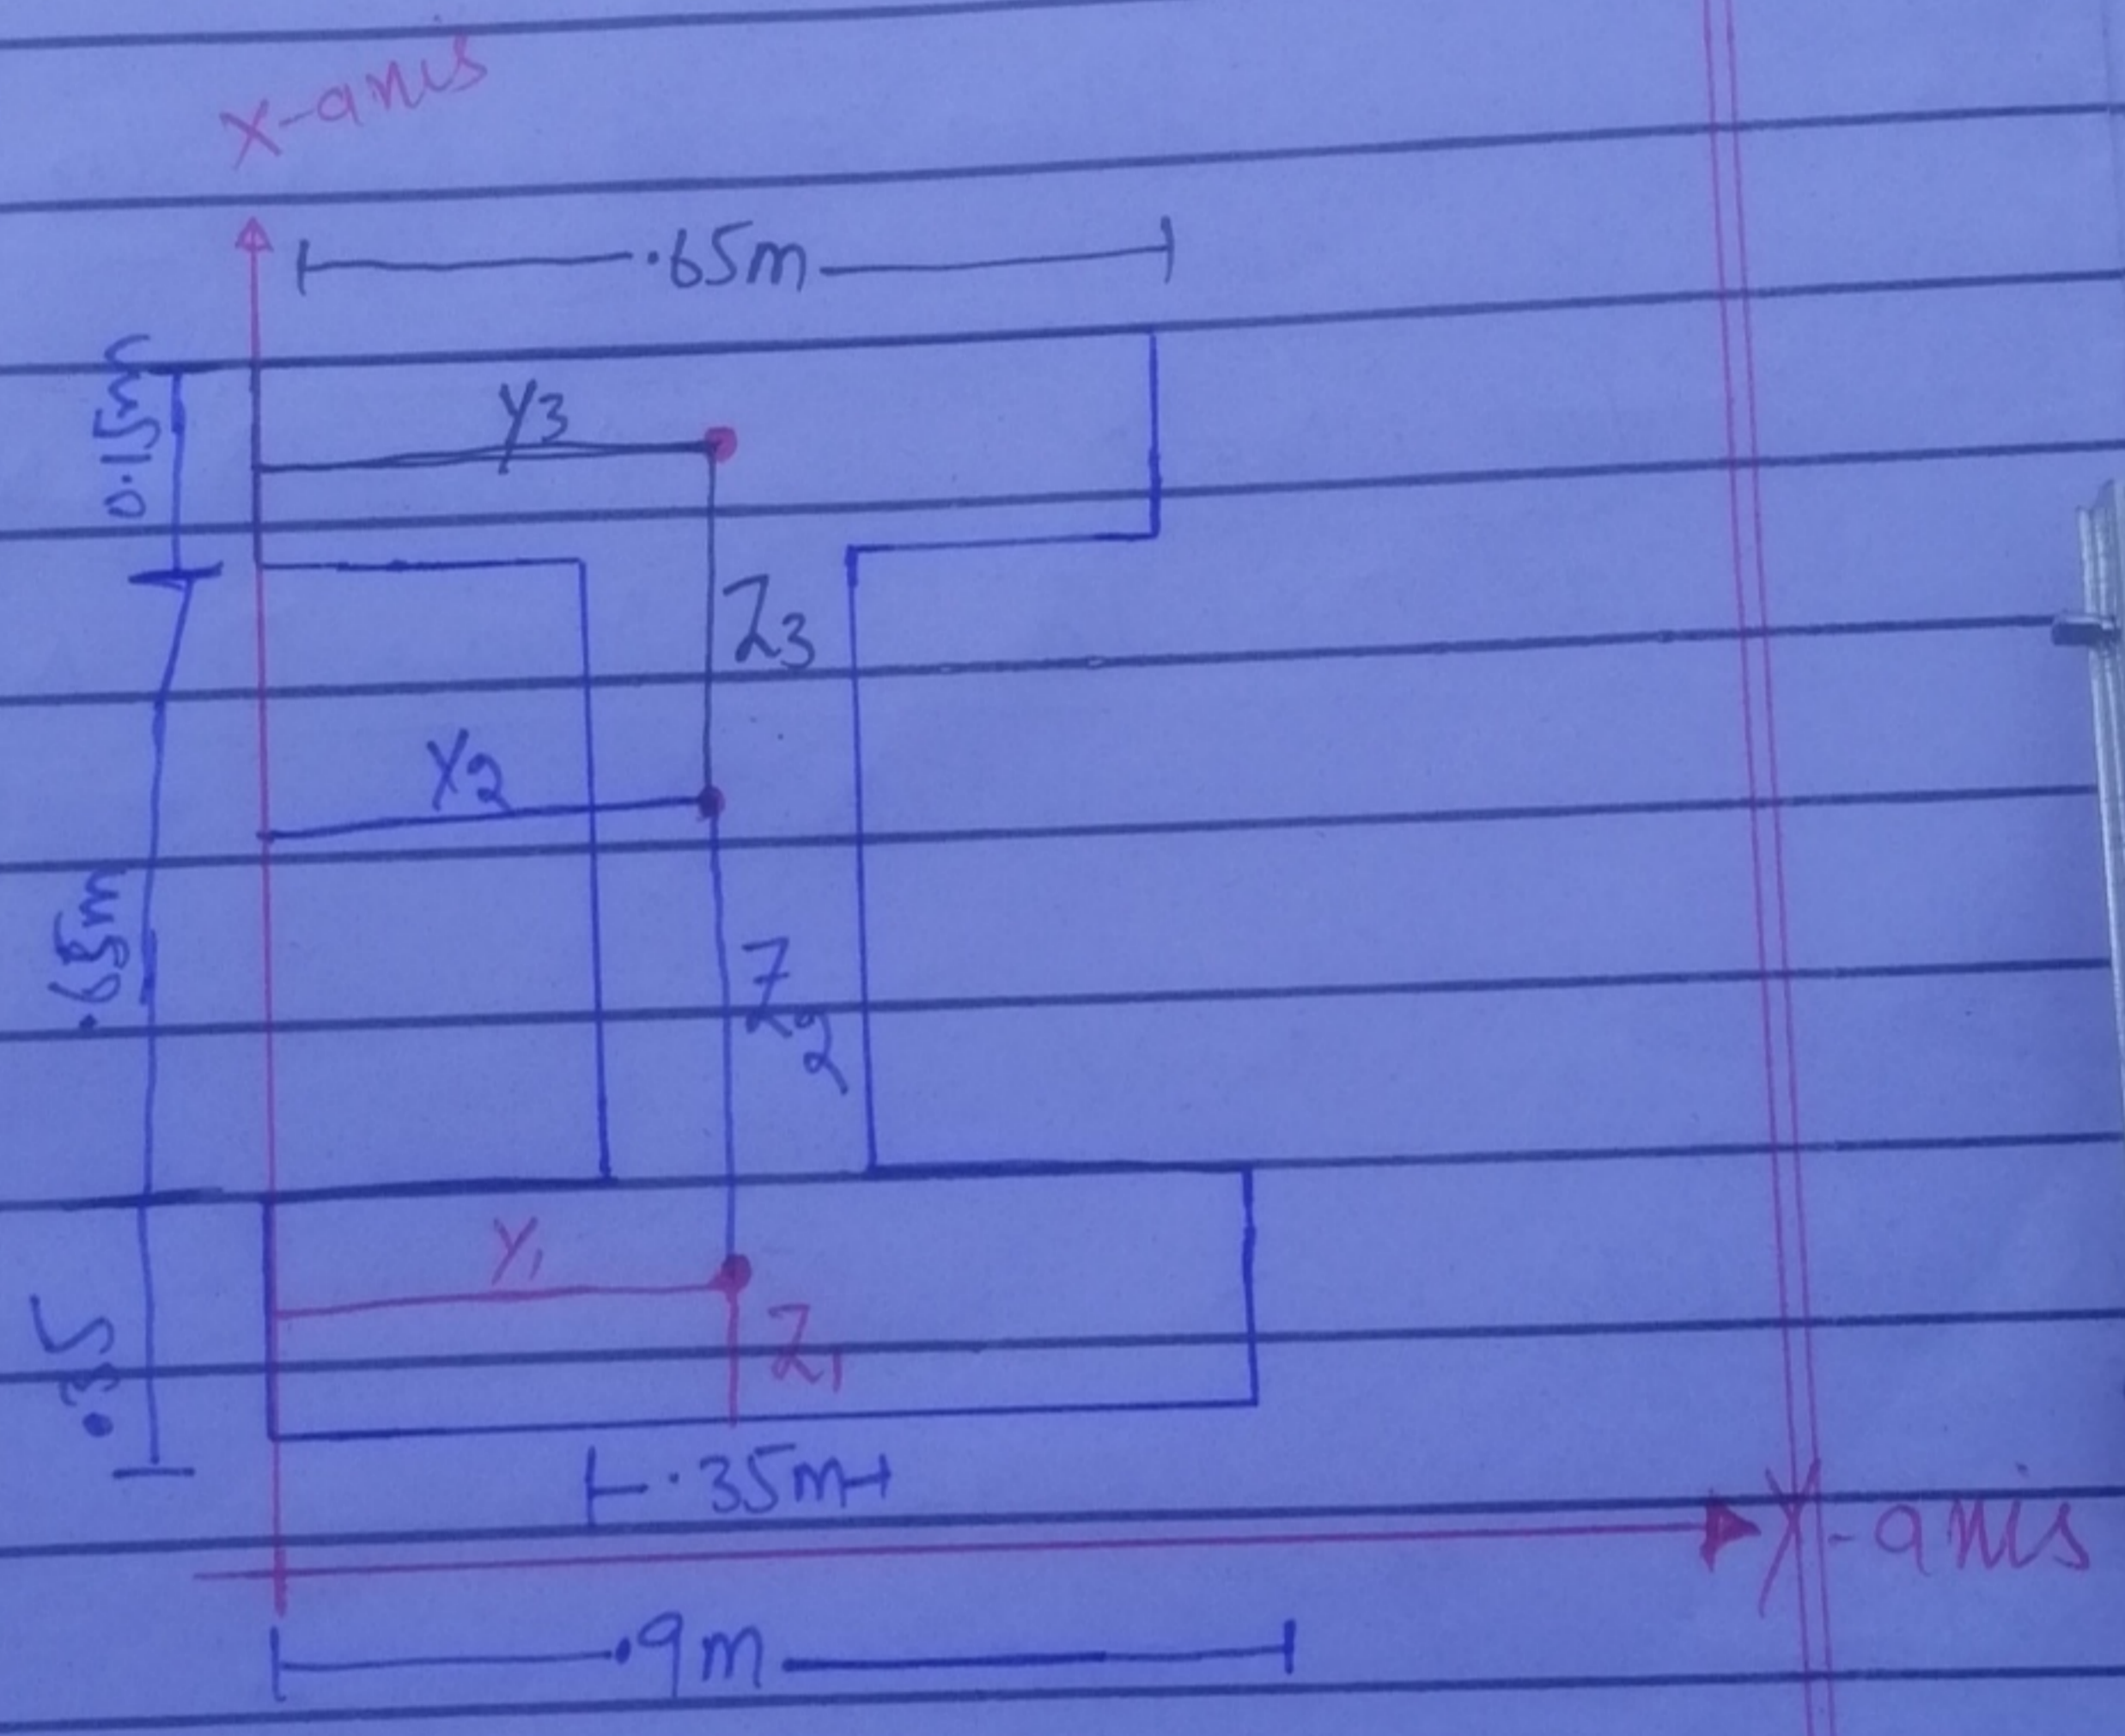 X-axis
.65m
0.15m
y3
Z3
y2
.65m
Z2
y1
Z1
.35
.35m
X-axis
.9m